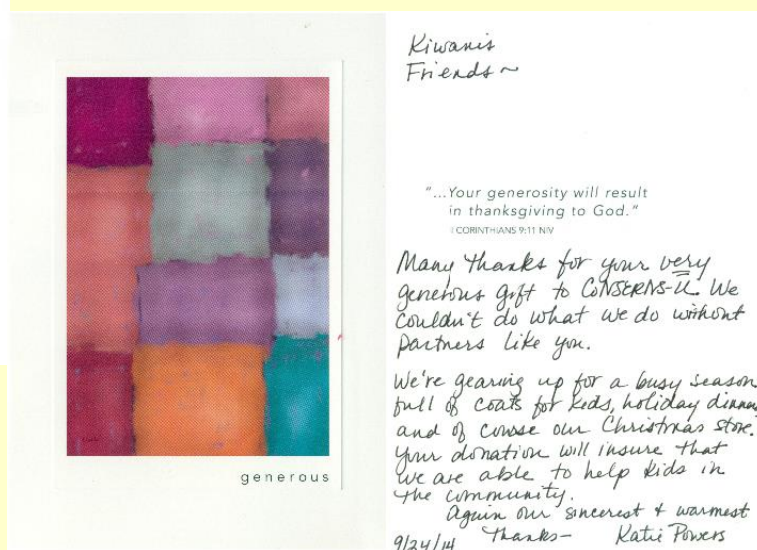 generous
Kiwanis
Friends ~
"...Your generosity will result
in thanksgiving to God."
I CORINTHIANS 9:11 NIV
Many thanks for your very
generous gift to CoNSERNS-U. We
couldn't do what we do without
partners like you.
We're gearing up for a busy season
full of coats for kids, holiday dinners
and of course our Christmas store.
Your donation will insure that
we are able to help kids in
the community.
Again our sincerest + warmest
thanks-
Katie Powers
9/24/14